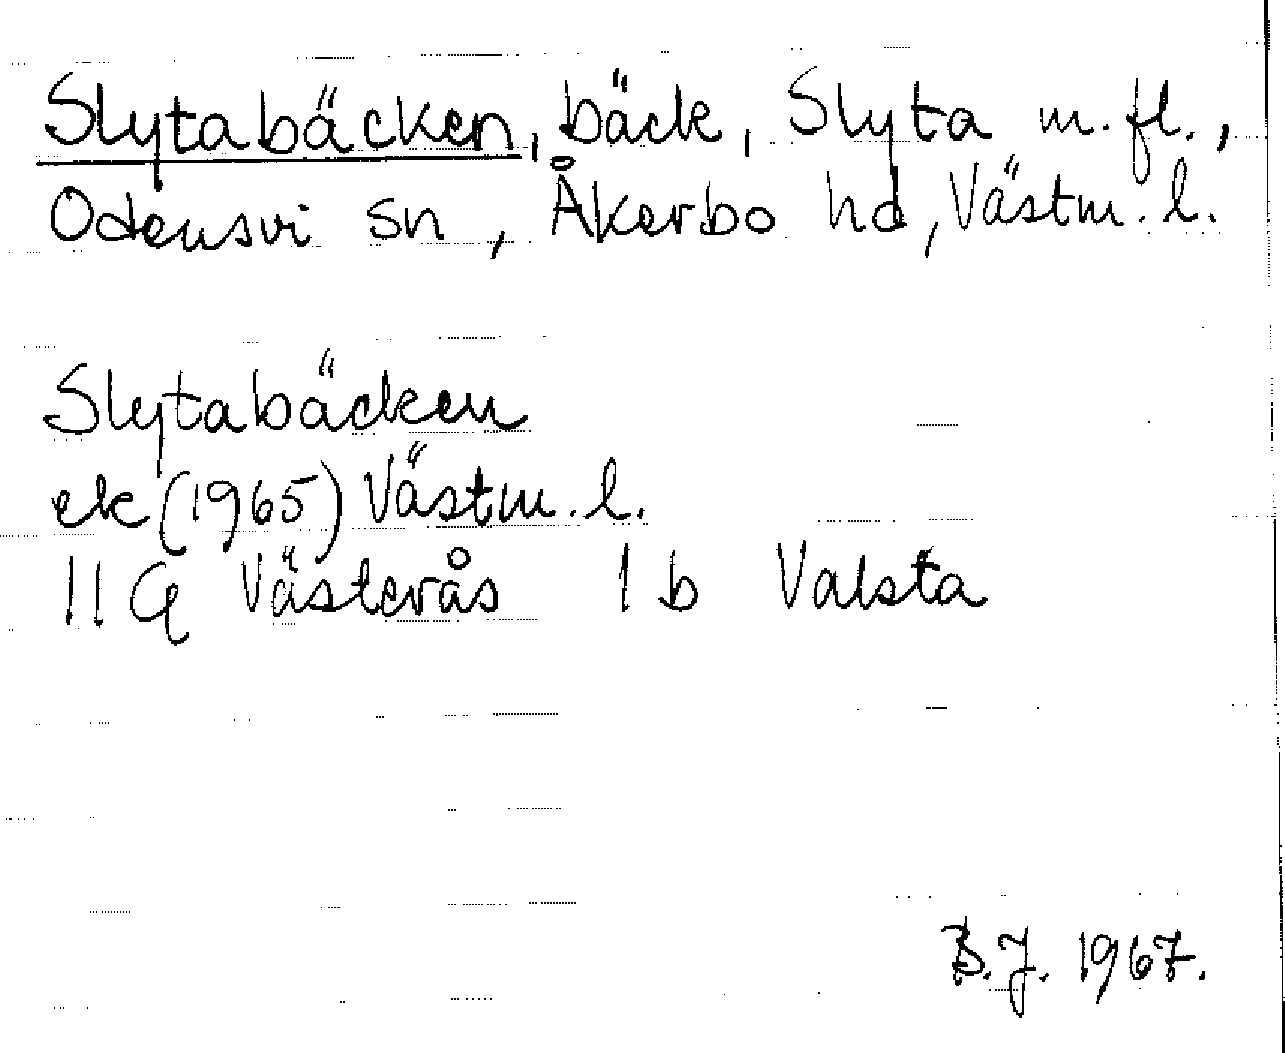 Slytabäcken, bäck, Slyta m. fl.,
Odensvi sn, Åkerbo hd, Västm. l.
Slytabäcken
ek (1965) Västm. l.
11 G Västerås 1 b Valsta
B.J. 1967.